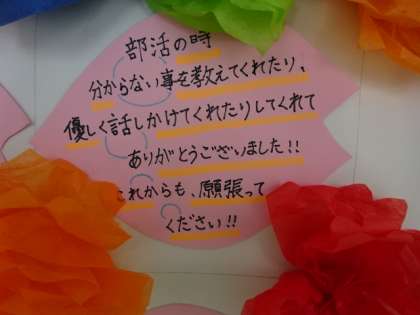 部活の時
分からない事を教えてくれたり、
優しく話しかけてくれたりしてくれて
ありがとうございました!!
これからも、願張って
ください!!